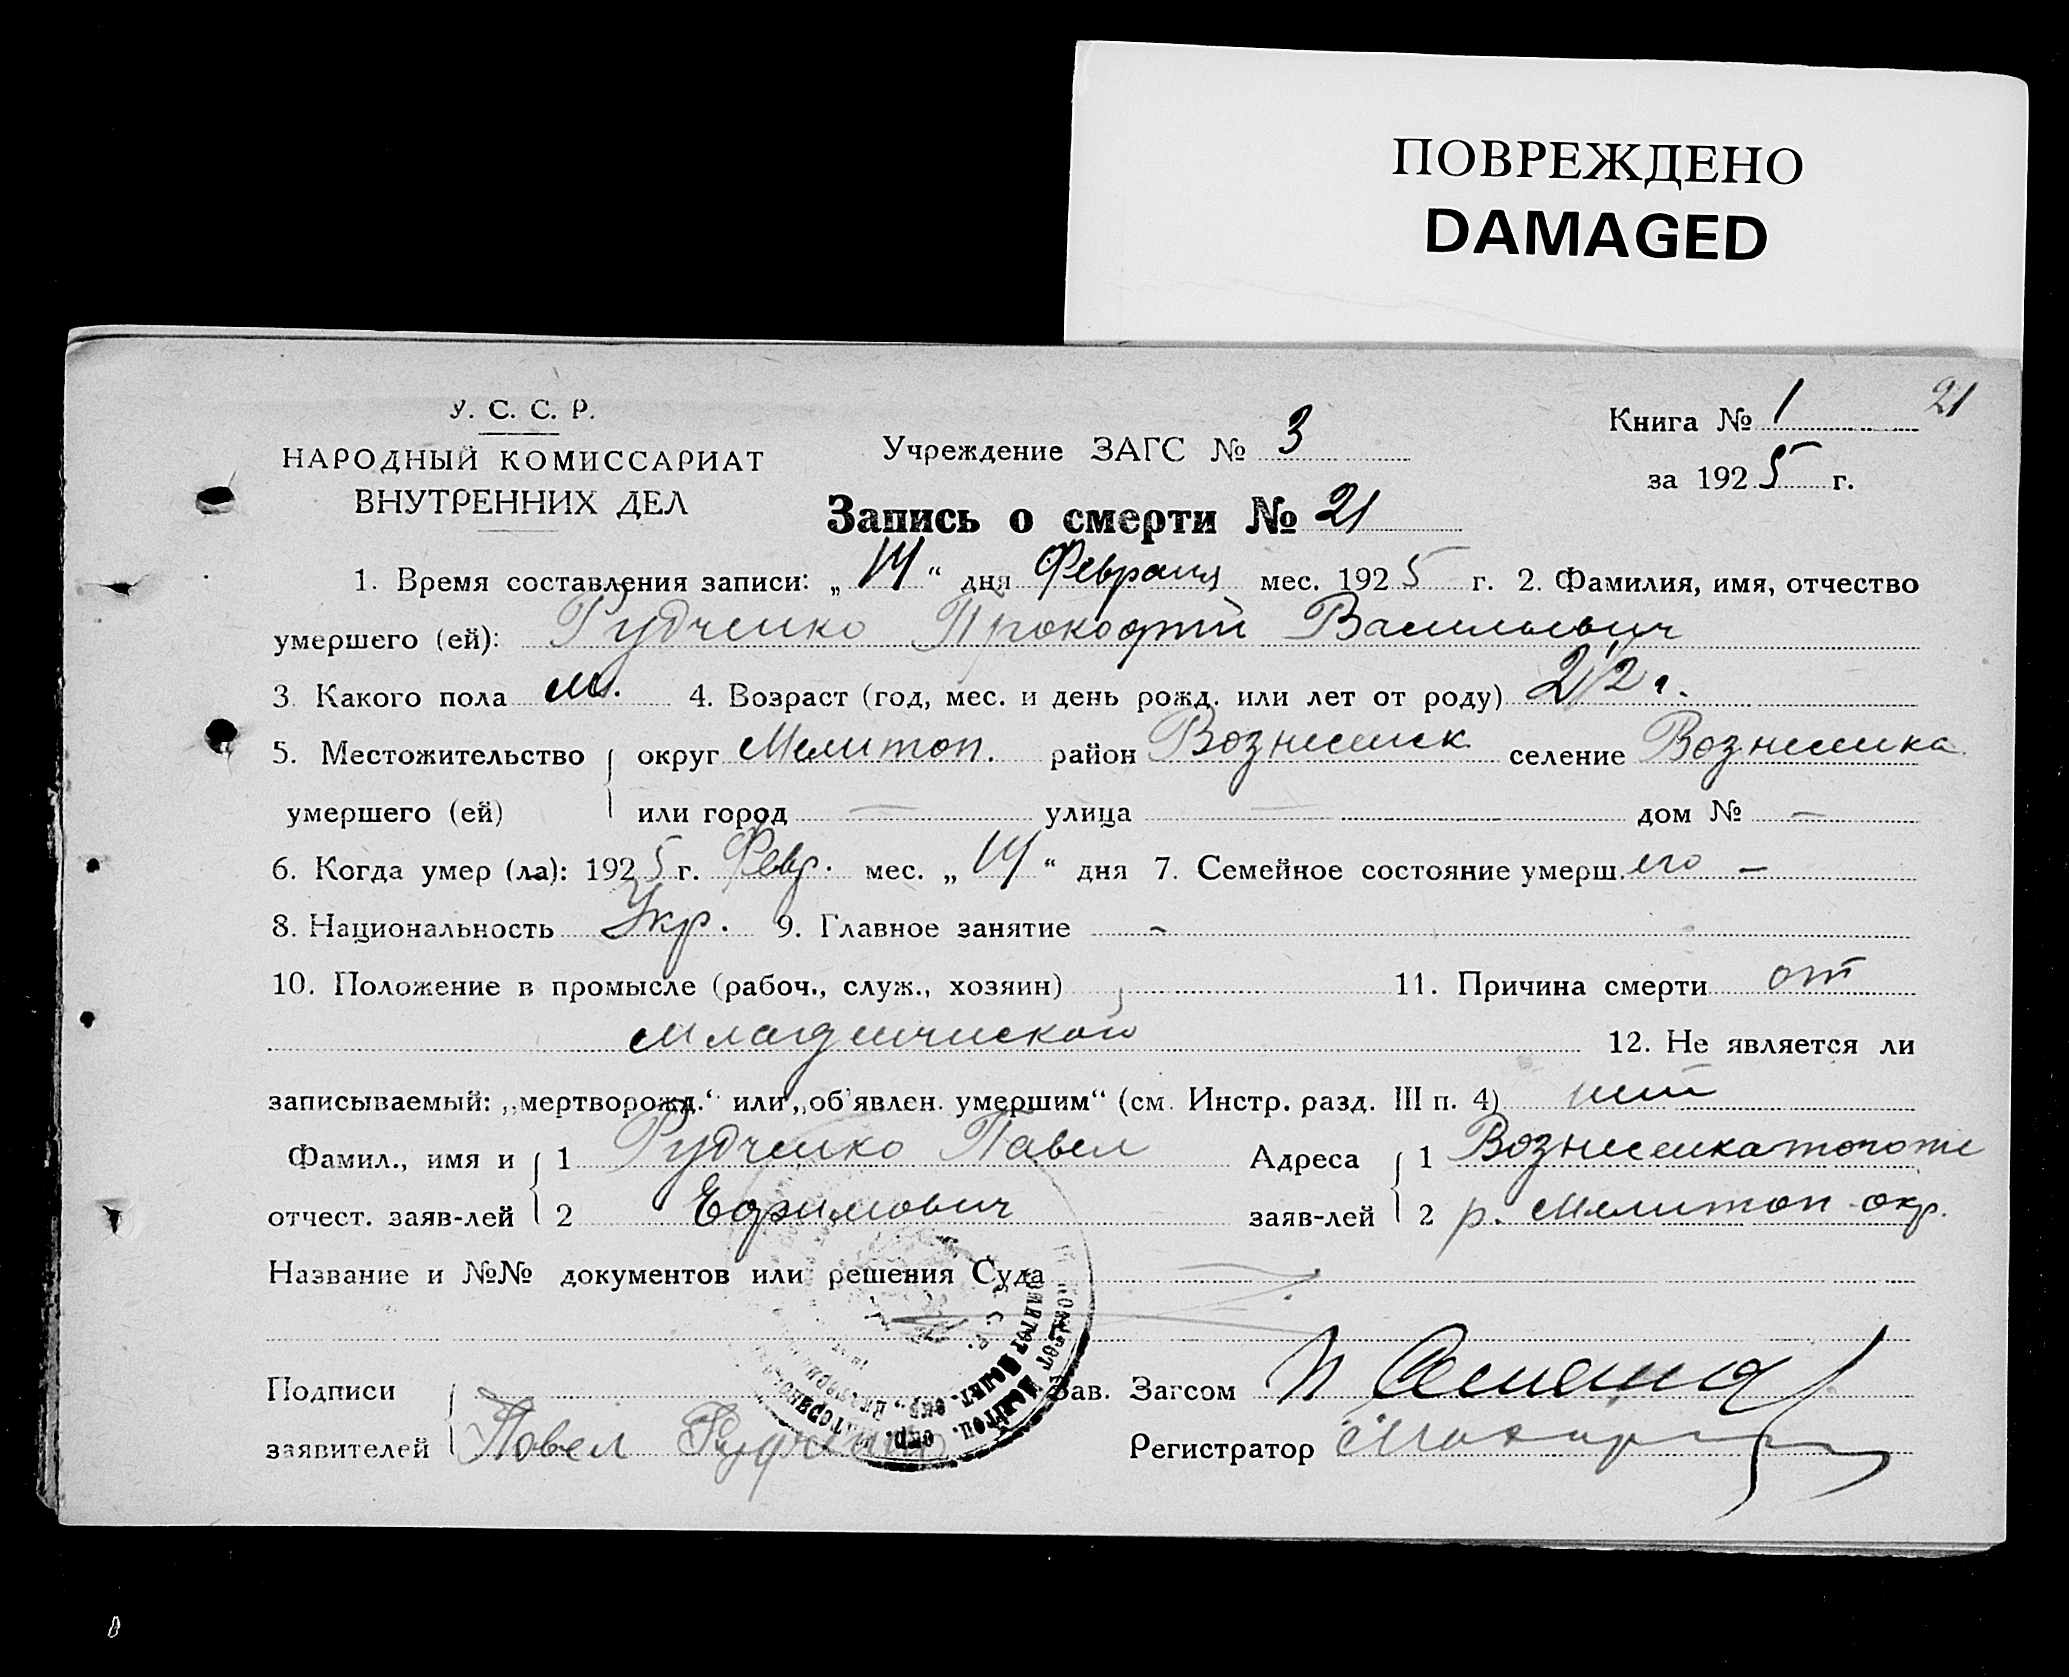 ПОВРЕЖДЕНО
DAMAGED
У. С. С. Р.
НАРОДНЫЙ КОМИССАРИАТ
ВНУТРЕННИХ ДЕЛ
Учреждение ЗАГС № 3
Книга № 1 21
за 1925 г.
Запись о смерти № 21
1. Время составления записи: „14“ дня Февраля мес. 1925 г. 2. Фамилия, имя, отчество
умершего (ей): Рудченко Прокофий Васильевич
3. Какого пола м. 4. Возраст (год, мес. и день рожд. или лет от роду) 2 1/2 г.
5. Местожительство округ Мелитоп. район Вознесенск селение Вознесенка
умершего (ей) или город — улица — дом № —
6. Когда умер (ла): 1925 г. Февр. мес. „14“ дня 7. Семейное состояние умерш.его —
8. Национальность Укр. 9. Главное занятие —
10. Положение в промысле (рабоч., служ., хозяин) 11. Причина смерти от
младенческой 12. Не является ли
записываемый: „мертворожд.“ или „об'явлен. умершим“ (см. Инстр. разд. III п. 4) нет
Фамил., имя и 1 Рудченко Павел Адреса 1 Вознесенка того же
отчест. заяв-лей 2 Ефимович заяв-лей 2 р. Мелитоп окр.
Название и №№ документов или решения Суда
Подписи Зав. Загсом
заявителей Повел Рудченко Регистратор
8